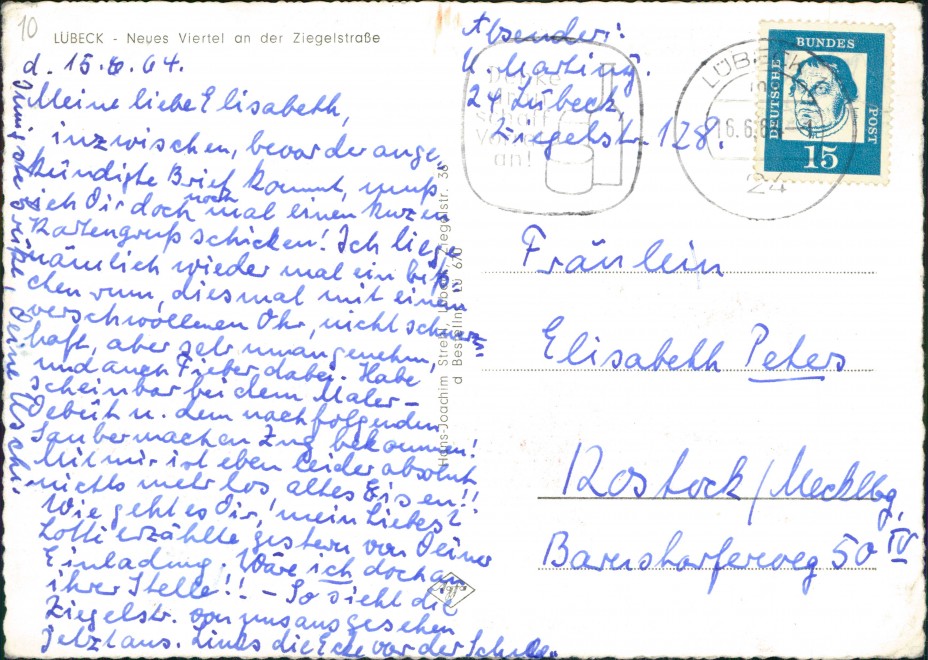 10
LÜBECK - Neues Viertel an der Ziegelstraße
d. 15.6.64.
Meine liebe Elisabeth,
inzwischen, bevor der ange-
kündigte Brief kommt, muß
ich Dir doch noch mal einen kurzen
Kartengruß schicken! Ich liege
nämlich wieder mal ein biß-
chen rum, diesmal mit einem
verschwollenen Ohr, nicht schmerz-
haft, aber sehr unangenehm,
und auch Fieber dabei. Habe
scheinbar bei dem Maler-
Debüt u. dem nachfolgenden
Saubermachen Zug bekommen!
Mit mir ist eben leider absolut
nichts mehr los altes Eisen!!
Wie geht es Dir, mein Liebes?
Lotti erzählte gestern von Deiner
Einladung. Wäre ich doch an
ihrer Stelle!! - So sieht die
Ziegelstr. von uns aus gesehen
jetzt aus. Links die Ecke vor der Schule.
Innigste Grüße, Deine
Hans-Joachim Strebl, Lübeck, Ziegelstr. 36
d Bestellnr. Lü 670
Absender:
24 Lübeck,
Ziegelstr. 128.
Danke
an!
LÜBECK
16.6.6
24
DEUTSCHE BUNDESPOST
15
Fräulein
Elisabeth Peters
Rostock/Mecklbg,
Barnstorferweg 50 IV